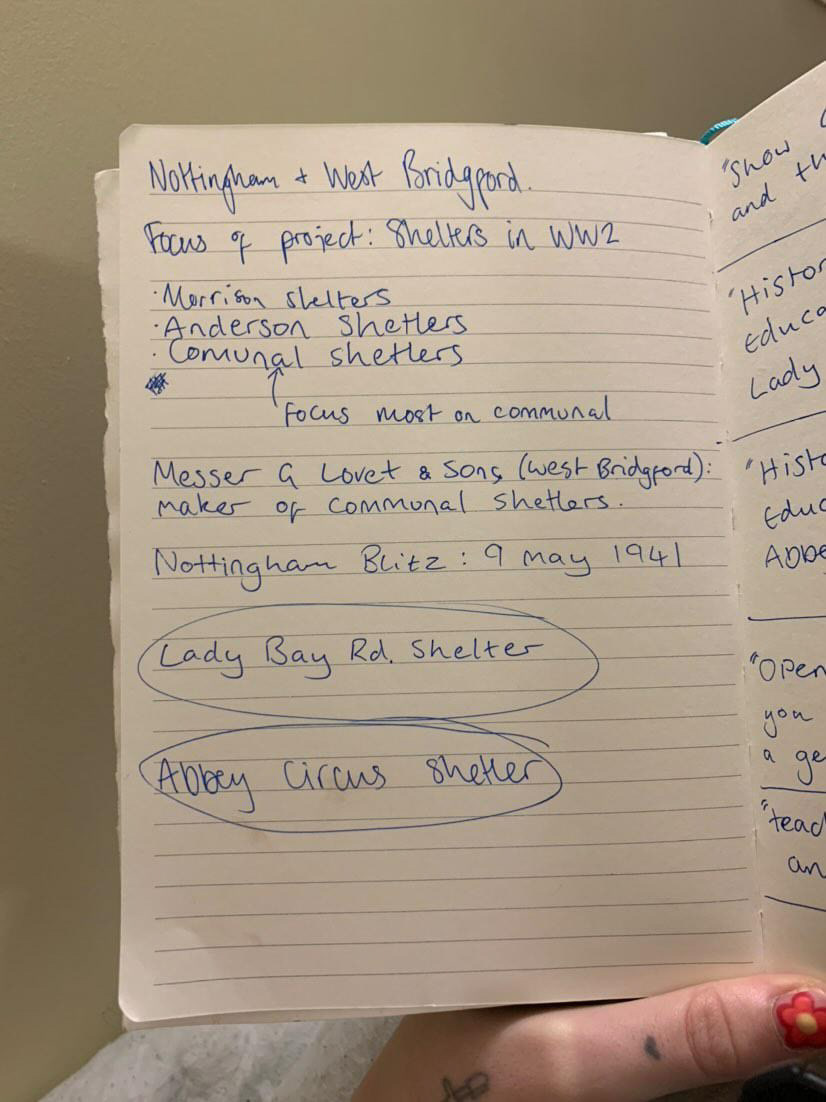 Nottingham + West Bridgford.
Focus of project: Shelters in WW2
· Morrison shelters
· Anderson Shetlers
· Comunal shetlers
Focus most on communal
Messer G Lovet & Sons (West Bridgford):
maker of communal shetlers.
Nottingham Blitz: 9 may 1941
Lady Bay Rd. Shelter
Abbey Circus Shetler
"Show
and
"Histor
Educa
Lady
"Histo
Educ
Abbe
"Open
you
a ge
"teac
an